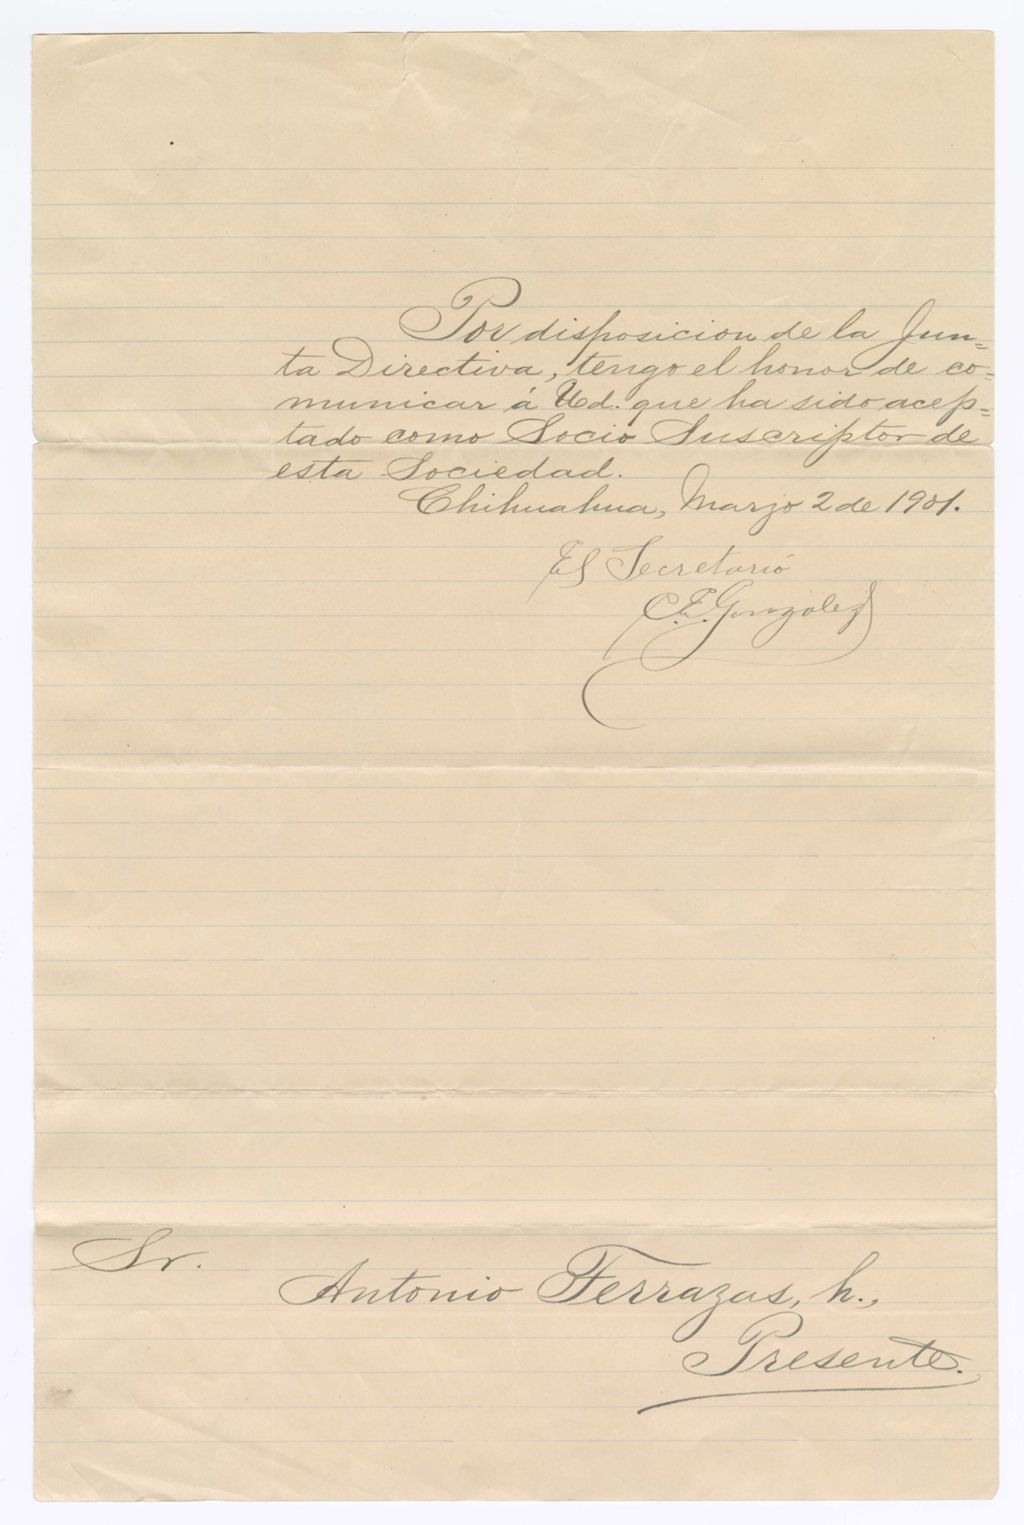 Por disposicion de la Jun=
ta Directiva, tengo el honor de co=
municar á Ud. que ha sido acep=
tado como Socio Suscriptor de
esta Sociedad.
Chihuahua, Marzo 2 de 1901.
El Secretario
C. E. Gonzalez
Sr.
Antonio Terrazas, h.,
Presente.